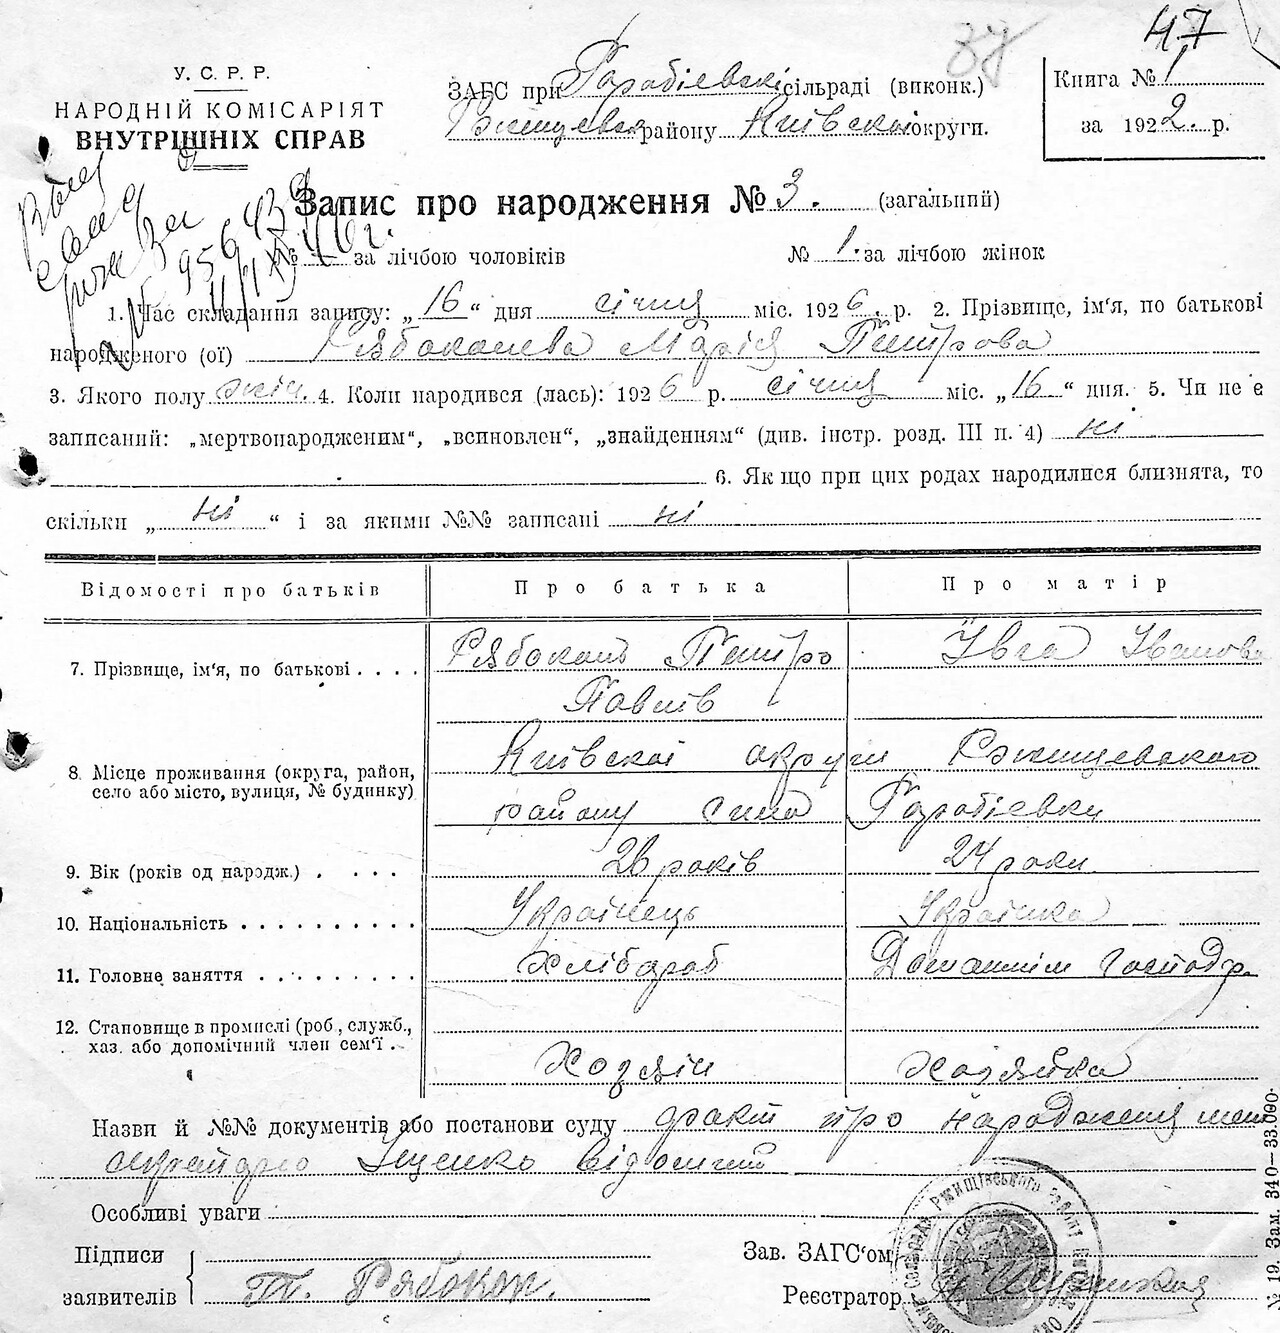 47
37
У. С. Р. Р.
НАРОДНІЙ КОМІСАРІЯТ
ВНУТРІШНІХ СПРАВ
ЗАГС при Гарабієвскі сільраді (виконк.)
району Київскої округи.
Книга № 1
за 1922. р.
Запис про народження № 3. (загальний)
№ за лічбою чоловіків № 1. за лічбою жінок
1. Час складання запису: „16“ дня січня міс. 1926. р. 2. Прізвище, ім'я, по батькові
народженого (ої) Рябоконева Марія Петрова
3. Якого полу жін. 4. Коли народився (лась): 1926 р. січня міс. „16“ дня. 5. Чи не є
записаний: „мертвонародженим“, „всиновлен“, „знайденям“ (див. інстр. розд. III п. 4) ні
6. Як що при цих родах народилися близнята, то
скільки „ні“ і за якими №№ записані ні
Відомості про батьків Про батька Про матір
7. Прізвище, ім'я, по батькові . . . . Рябоконь Петро Ївга Іванова
Павлів
8. Місце проживання (округа, район, село або місто, вулиця, № будинку) Київскої округи Ржищевского
району села Гарабіевки
9. Вік (років од народж.) . . . . 26 років 24 роки
10. Національність . . . . . . . . . . Українець Українка
11. Головне заняття . . . . . . . . Хлібороб Домашнім господр.
12. Становище в промислі (роб., служб., хаз. або допомічний член сем'ї . Хозяін Хозяйка
Назви й №№ документів або постанови суду факт про народження
Іщенко відомий
Особливі уваги
Підписи
заявителів П. Рябокон.
Зав. ЗАГС'ом
Реєстратор
У 19. Зам. 340—33.000.